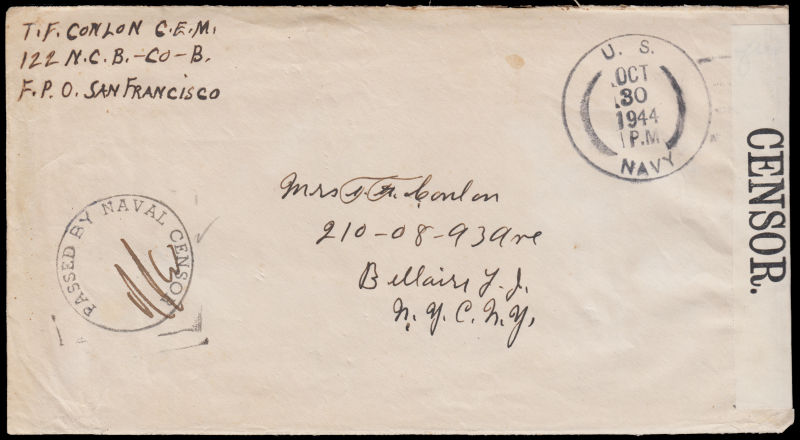 T.F. CONLON C.E.M.
122 N.C.B.-CO-B.
F.P.O. SAN FRANCISCO
U. S.
OCT
30
1944
1 P.M
NAVY
CENSOR.
PASSED BY NAVAL CENSOR
Mrs T. F. Conlon
210-08-93 Ave
Bellaire L.I.
N.Y.C. N.Y.